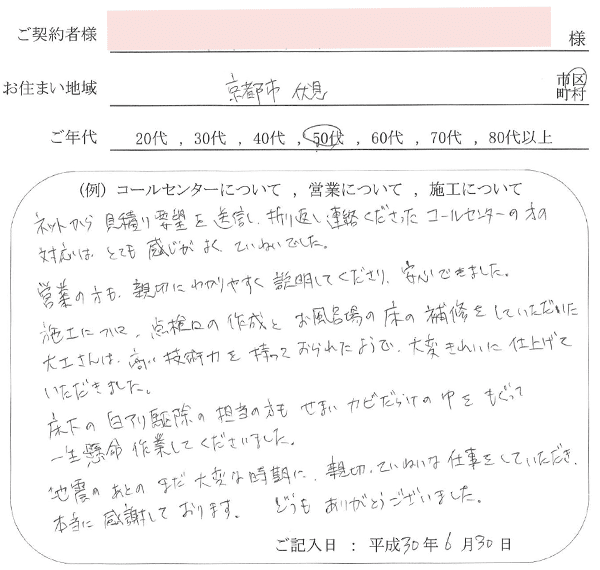 ご契約者様 様
お住まい地域 京都市 伏見 市区町村
ご年代 20代 , 30代 , 40代 , 50代 , 60代 , 70代 , 80代以上
(例) コールセンターについて , 営業について , 施工について
ネットから 見積り要望を送信し、折り返し連絡くださった コールセンターの方の
対応は、とても 感じがよく、ていねいでした。
営業の方も、親切にわかりやすく 説明してくださり、安心できました。
施工について、点検口の作成と お風呂場の床の補修をしていただいた
大工さんは、高い技術力を持っておられたようで、大変きれいに仕上げて
いただきました。
床下の白アリ駆除の担当の方も せまい カビだらけの中をもぐって
一生懸命 作業してくださいました。
地震のあとの まだ 大変な時期に、親切、ていねいな仕事をしていただき、
本当に感謝しております。 どうも ありがとうございました。
ご記入日 : 平成30年6月30日